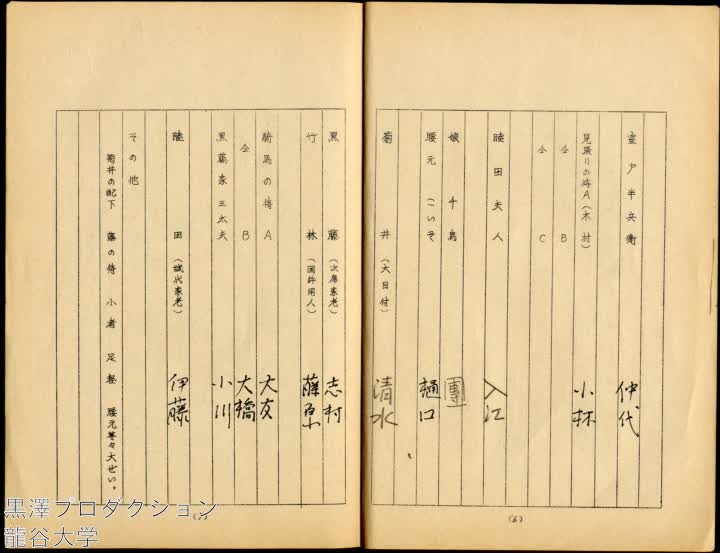 室戸半兵衛 仲代
見張りの侍A（木村） 小林
仝 B
仝 C
睦田夫人 入江
娘 千鳥 團
腰元 こいそ 樋口
菊井（大目付） 清水
(6)
黒藤（次席家老） 志村
竹林（国許用人） 藤原
騎馬の侍 A 大友
仝 B 大橋
黒藤家三太夫 小川
睦田（城代家老） 伊藤
その他
菊井の配下 藤の侍 小者 足軽 腰元等々大せい。
黒澤プロダクション
龍谷大学